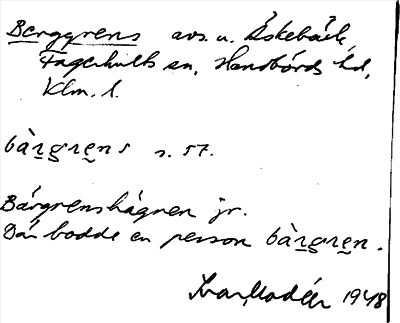 Berggrens avs. u. Åskebäck,
Fagerhults sn, Handbörds hd,
Klm. l.
bàrgrens s. 57.
Bärgrenshägnen jr.
Där bodde en person bàrgren.
Ivar Modéer 1948